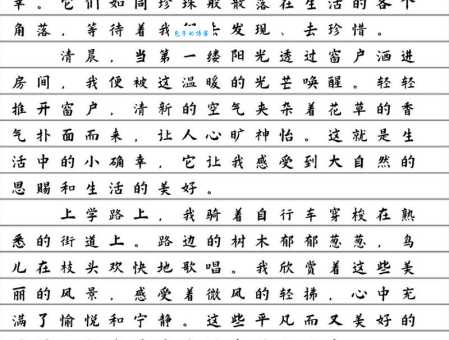 幸。它们如同珍珠般散落在生活的各个
角落，等待着我们去发现、去珍惜。
清晨，当第一缕阳光透过窗户洒进
房间，我便被这温暖的光芒唤醒。轻轻
推开窗户，清新的空气夹杂着花草的香
气扑面而来，让人心旷神怡。这就是生
活中的小确幸，它让我感受到大自然的
恩赐和生活的美好。
上学路上，我骑着自行车穿梭在熟
悉的街道上。路边的树木郁郁葱葱，鸟
儿在枝头欢快地歌唱。我欣赏着这些美
丽的风景，感受着微风的轻拂，心中充
满了愉悦和宁静。这些平凡而又美好的